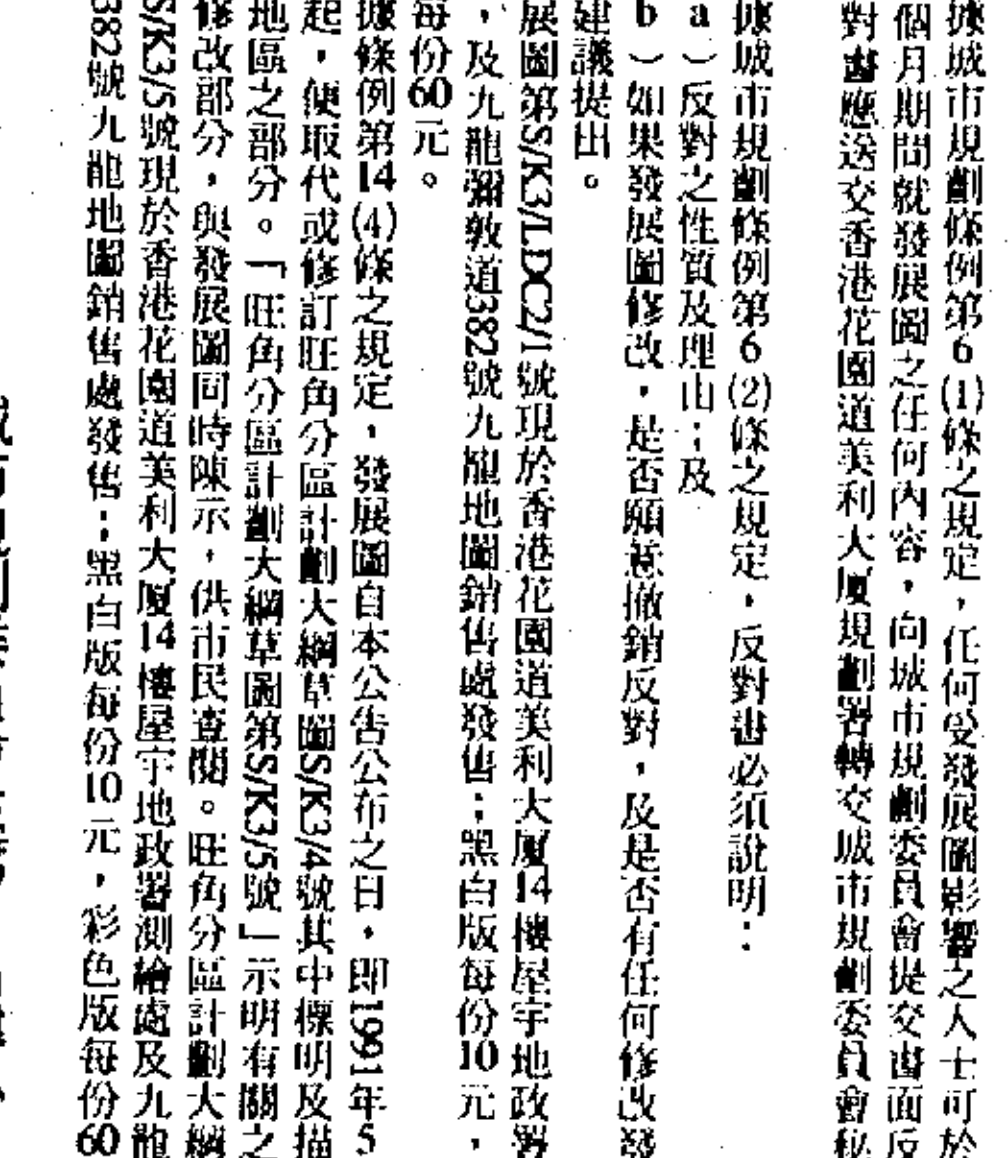 據城市規劃條例第6(1)條之規定，任何受發展圖影響之人士可於
個月期間就發展圖之任何內容，向城市規劃委員會提交書面反
對書應送交香港花園道美利大廈規劃署轉交城市規劃委員會秘
據城市規劃條例第6(2)條之規定，反對書必須說明：
a）反對之性質及理由；及
b）如果發展圖修改，是否願意撤銷反對，及是否有任何修改發
建議提出。
展圖第S/K3/LDC2/1號現於香港花園道美利大廈14樓屋宇地政署
，及九龍彌敦道382號九龍地圖銷售處發售；黑白版每份10元，
每份60元。
據條例第14(4)條之規定，發展圖自本公告公布之日，即1991年5
起，便取代或修訂旺角分區計劃大綱草圖S/K3/4號其中標明及描
地區之部分。「旺角分區計劃大綱草圖第S/K3/5號」示明有關之
修改部分，與發展圖同時陳示，供市民查閱。旺角分區計劃大綱
S/K3/5號現於香港花園道美利大廈14樓屋宇地政署測繪處及九龍
382號九龍地圖銷售處發售；黑白版每份10元，彩色版每份60